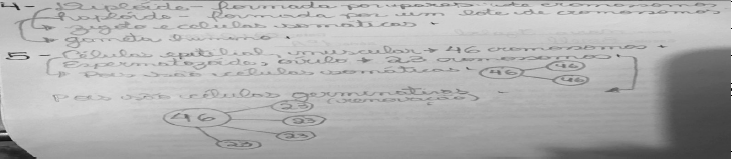 4- Diplóide - formada por pares de cromossomos
haplóide - formada por um lote de cromossomos
↳ zigoto e células somáticas.
↳ gameta humano.
5 - Células epitelial, muscular → 46 cromossomos.
Espermatozóide, óvulo → 23 cromossomos.
↳ pois são células somáticas. 46 46 46
pois são células germinativas
(renovação)
46 23 23 23 23